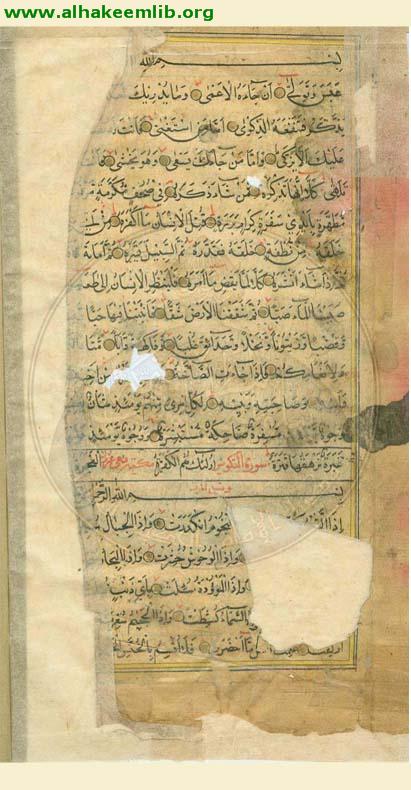 www.alhakeemlib.org
بسم الله
عبس وتولى ان جاءه الاعمى وما يدريك
يذكر فتنفعه الذكرى اما من استغنى فانت
عليك الا يزكى واما من جاءك يسعى وهو يخشى فانت
تلهى كلا انها تذكرة فمن شاء ذكره في صحف مكرمة مرفوعة
مطهرة بايدي سفرة كرام بررة قتل الانسان ما اكفره من
خلقه من نطفة خلقه فقدره ثم السبيل يسره ثم اماته
اذا شاء انشره كلا لما يقض ما امره فلينظر الانسان الى طعامه
صببنا الماء صبا ثم شققنا الارض شقا فانبتنا فيها حبا
وقضبا وزيتونا ونخلا وحدائق غلبا وفاكهة وابا متاعا
ولانعامكم فاذا جاءت الصاخة من اخيه
وصاحبته وبنيه لكل امرئ منهم يومئذ شان
وجوه مسفرة ضاحكة مستبشرة ووجوه يومئذ
غبرة ترهقها قترة اولئك هم الكفرة الفجرة
سورة التكوير
بسم الله الرحمن
اذا النجوم انكدرت واذا الجبال
واذا الوحوش حشرت واذا البحار
واذا الموءودة سئلت باي ذنب
السماء كشطت واذا الجحيم سعرت
ما احضرت فلا اقسم بالخنس